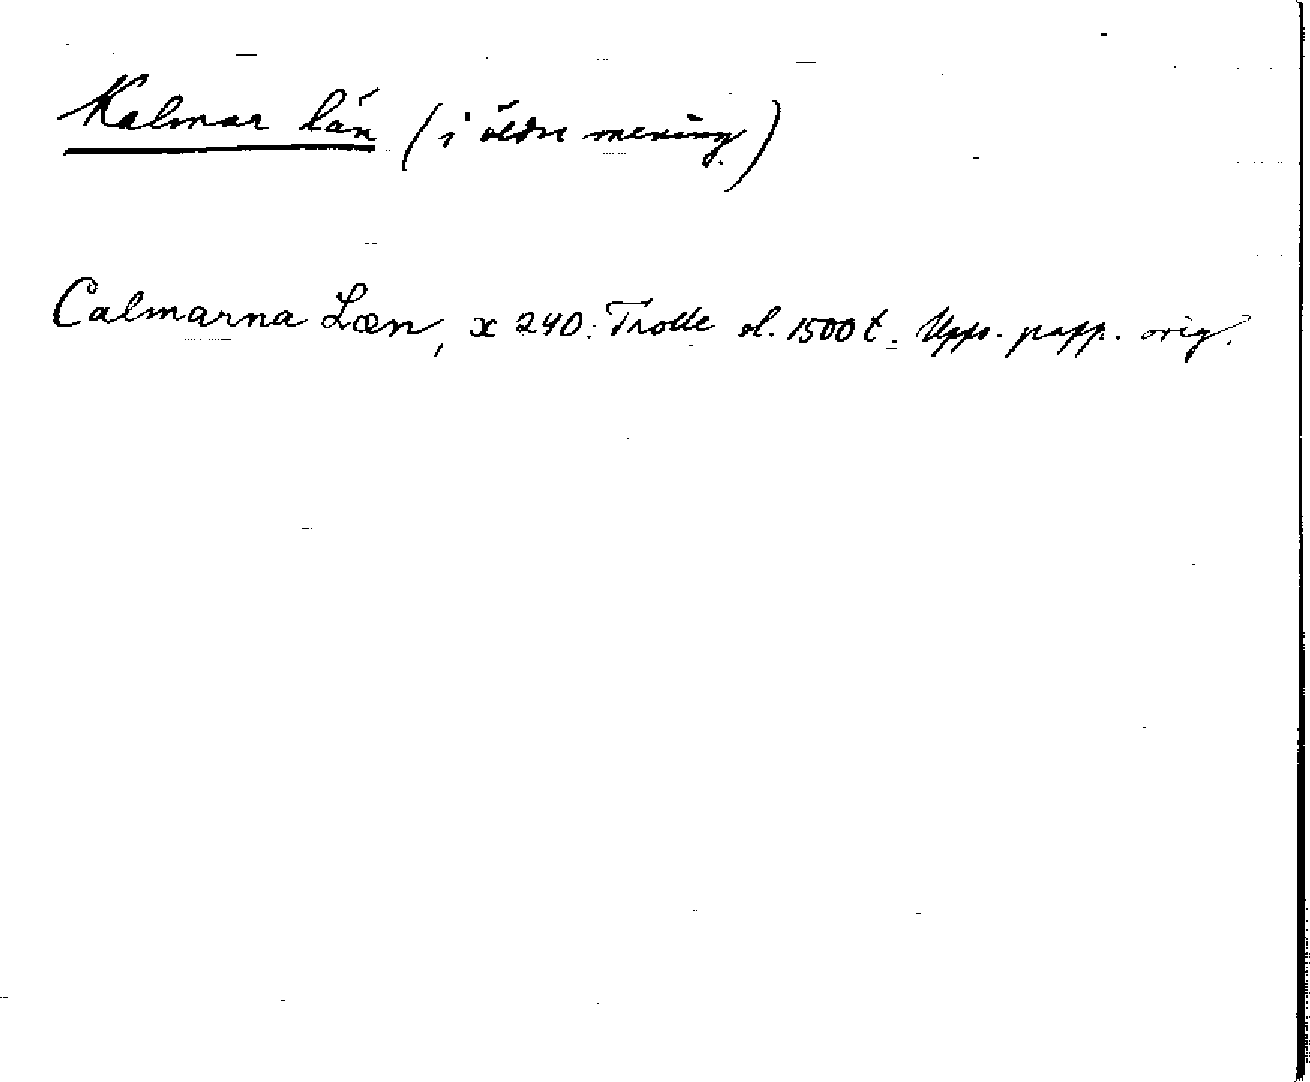 Kalmar län (i äldre mening)
Calmarna Læn, x 240. Trolle sl. 1500 t. Upps. papp. orig.